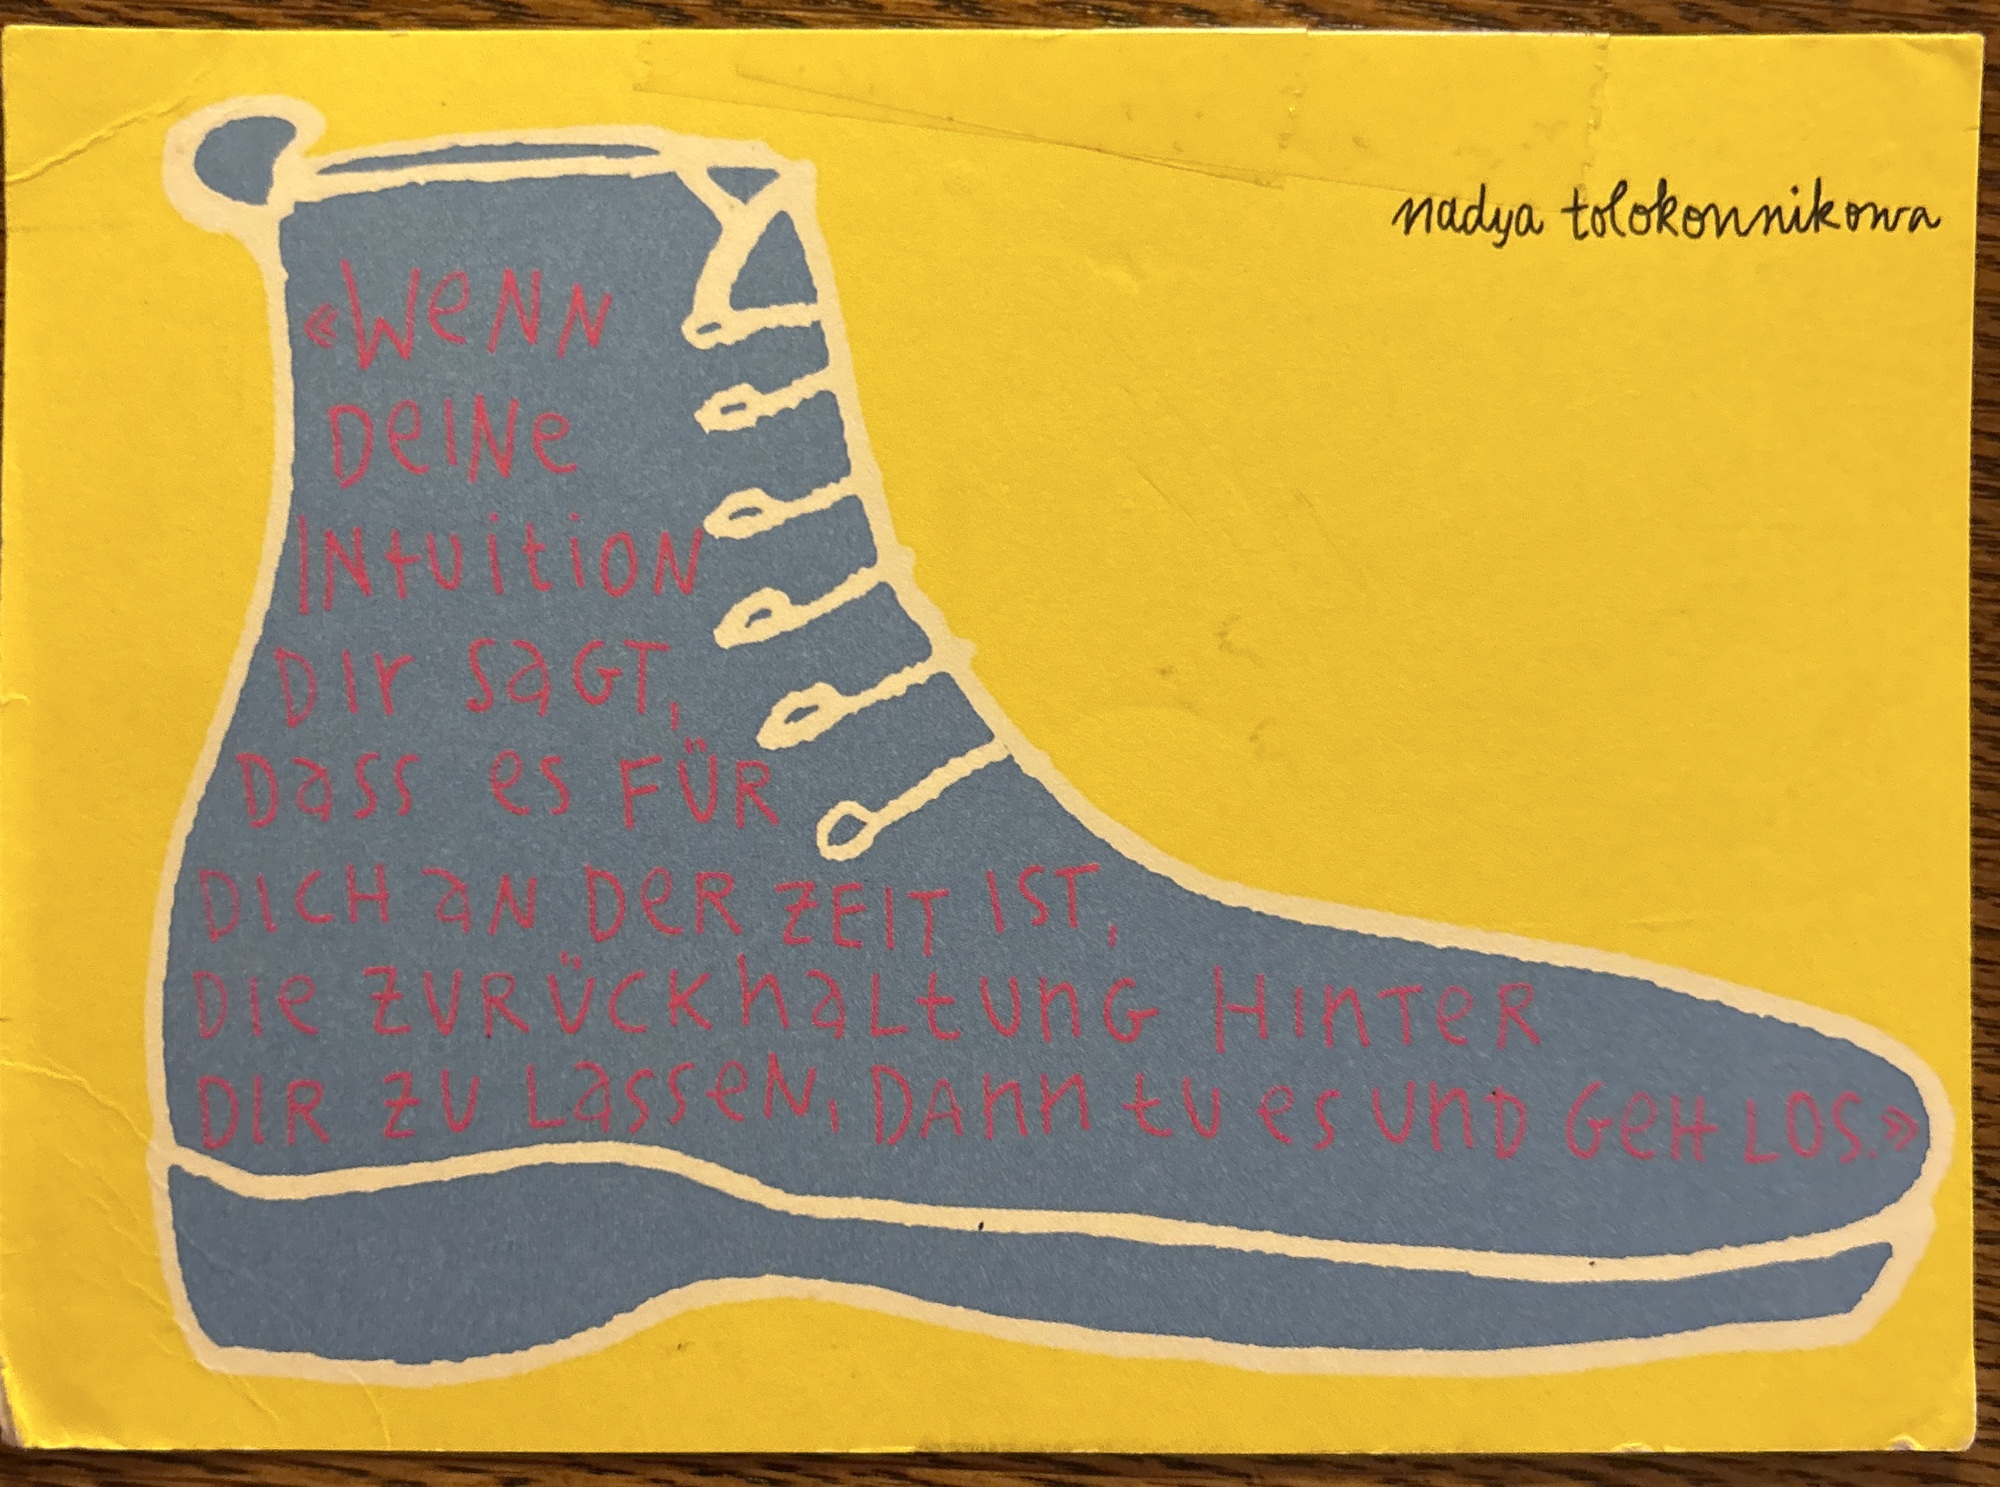 nadya tolokonnikowa
«Wenn
Deine
Intuition
Dir sagt,
Dass es FÜR
DICH an Der ZEIT IST,
Die ZURÜCKhaLtunG HinTeR
DIR zu Lassen, DAnn tu es unD GeH LOS.»